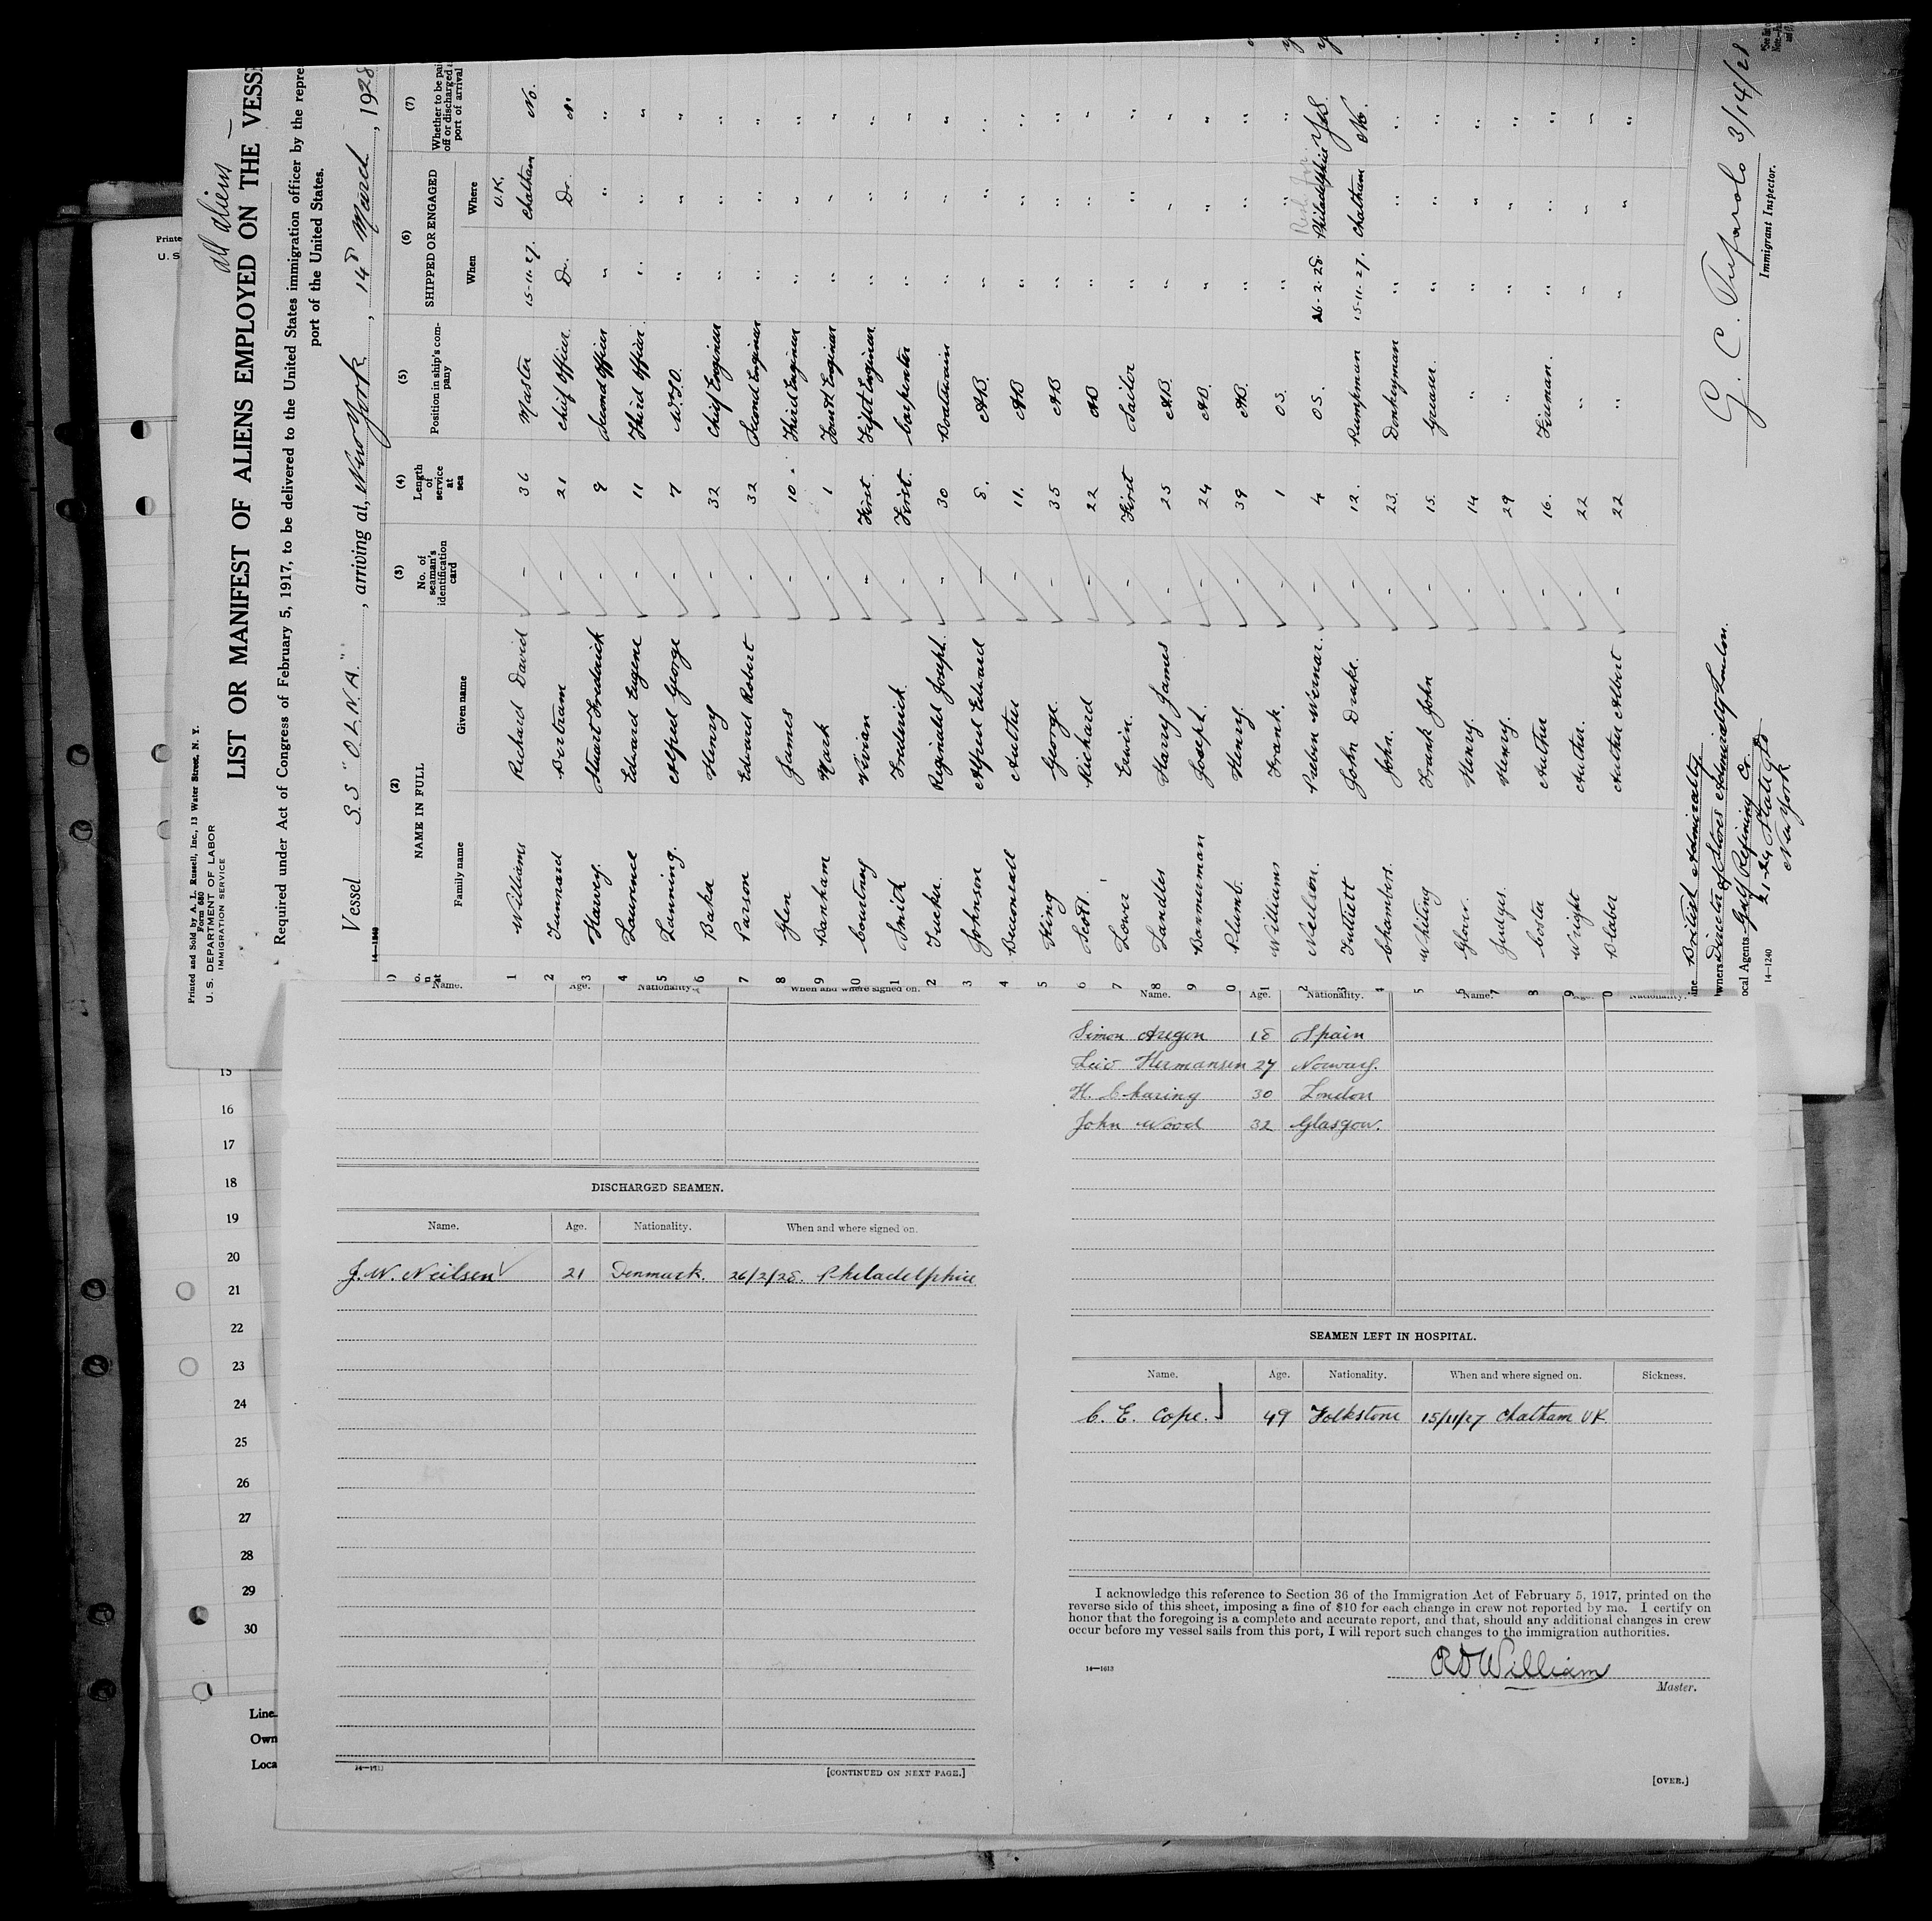 all aliens
Printed and Sold by A. L. Russell, Inc., 13 Water Street, N. Y.
Form 680
U. S. DEPARTMENT OF LABOR
IMMIGRATION SERVICE
LIST OR MANIFEST OF ALIENS EMPLOYED ON THE VESSE
Required under Act of Congress of February 5, 1917, to be delivered to the United States immigration officer by the repre
port of the United States.
Vessel S.S "OLNA." , arriving at New York , 14th March , 1928
14—1240
(2) (3) (4) (5) (6) (7)
NAME IN FULL No. of seaman's identification card Length of service at sea Position in ship's company SHIPPED OR ENGAGED Whether to be pai off or discharged a port of arrival
Family name Given name When Where
U.K.
1 Williams Richard David - 36 Master 15-11-27. Chatham No.
2 Tunnard Bertram - 21 Chief Officer Do. Do.
3 Harvey Stuart Frederick - 9 Second Officer " " "
4 Laurence Edward Eugene - 11 Third Officer " " "
5 Lanning. Alfred George - 7 W.T.O. " " "
6 Baker Henry - 32 Chief Engineer " " "
7 Parson Edward Robert - 32 Second Engineer " " "
8 Glen James - 10. Third Engineer " " "
9 Banham Mark - 1 Fourth Engineer " " "
0 Courtney Vivian - First. Fifth Engineer " " "
1 Smith Frederick - First. Carpenter " " "
2 Tucker. Reginald Joseph. - 30 Boatswain " " "
3 Johnson Alfred Edward - 8. AB. " " "
4 Arthur - 11. AB " " "
5 King George. - 35 AB " " "
6 Scott. Richard - 22 AB " " "
7 Lower Edwin. - First Sailor " " "
8 Landles Harry James - 25 AB. " " "
9 Bannerman Joseph. - 24 AB. " " "
0 Plumb. Henry. - 39 AB. " " "
1 Williams Frank. - 1 OS. " " "
2 Neilson. - 4 OS. 26-2-28. Philadelphia Yes.
3 Tutiett John Drake. - 12. Pumpman 15-11-27. Chatham No.
4 Chambers. John. - 23. Donkeyman " " "
5 Whiting Frank John - 15. Greaser. " " "
6 Glover. Henry. - 14 " " " "
7 Judges. Henry. - 29 " " " "
8 Coster Arthur - 16. Fireman. " " "
9 Wright Arthur. - 22 " " " "
0 Blaber Arthur Albert - 22 " " " "
ine British Admiralty
wners Director of Stores Admiralty London.
ocal Agents Gulf Refining Co.
21-24 State St
New York
14—1240
G. C. Tufarolo 3/14/28
Immigrant Inspector.
Name. Age. Nationality. When and where signed on.
DISCHARGED SEAMEN.
Name. Age. Nationality. When and where signed on.
J. W. Neilsen 21 Denmark. 26/2/28. Philadelphia
14—1613
[CONTINUED ON NEXT PAGE.]
Name. Age. Nationality. Name. Age. Nationality.
Simon Aregon 18 Spain
Leio Hermansen 27 Norway.
H. Charing 30 London
John Wood 32 Glasgow.
SEAMEN LEFT IN HOSPITAL.
Name. Age. Nationality. When and where signed on. Sickness.
C. E. Cope. 49 Folkstone 15/11/27 Chatham UK
I acknowledge this reference to Section 36 of the Immigration Act of February 5, 1917, printed on the
reverse side of this sheet, imposing a fine of $10 for each change in crew not reported by me. I certify on
honor that the foregoing is a complete and accurate report, and that, should any additional changes in crew
occur before my vessel sails from this port, I will report such changes to the immigration authorities.
14—1613
RD William
Master.
[OVER.]
Printe
U. S
15
16
17
18
19
20
21
22
23
24
25
26
27
28
29
30
Line
Own
Loca